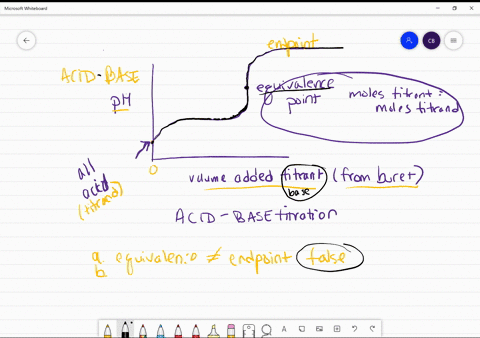 Microsoft Whiteboard
CB
endpoint
ACID-BASE
pH
equivalence
point
moles titrant:
moles titrand
all
acid
(titrand)
0
volume added titrant (from buret)
base
ACID-BASE titration
a. equivalence ≠ endpoint false
b.